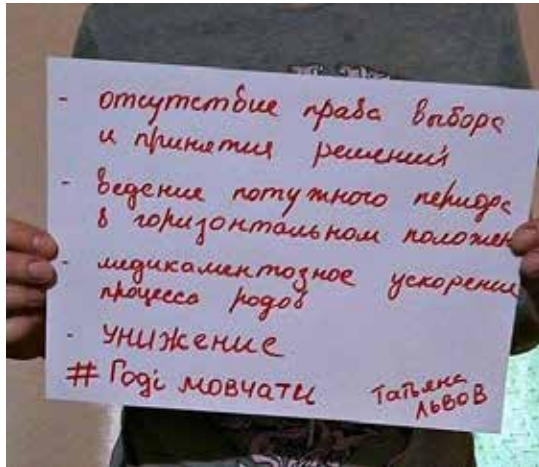 - отсутствие права выбора
и принятия решений
- ведение потужного периода
в горизонтальном положен
- медикаментозное ускорение
процесса родов
- унижение
# Годі мовчати
Татьяна
ЛЬВОВ